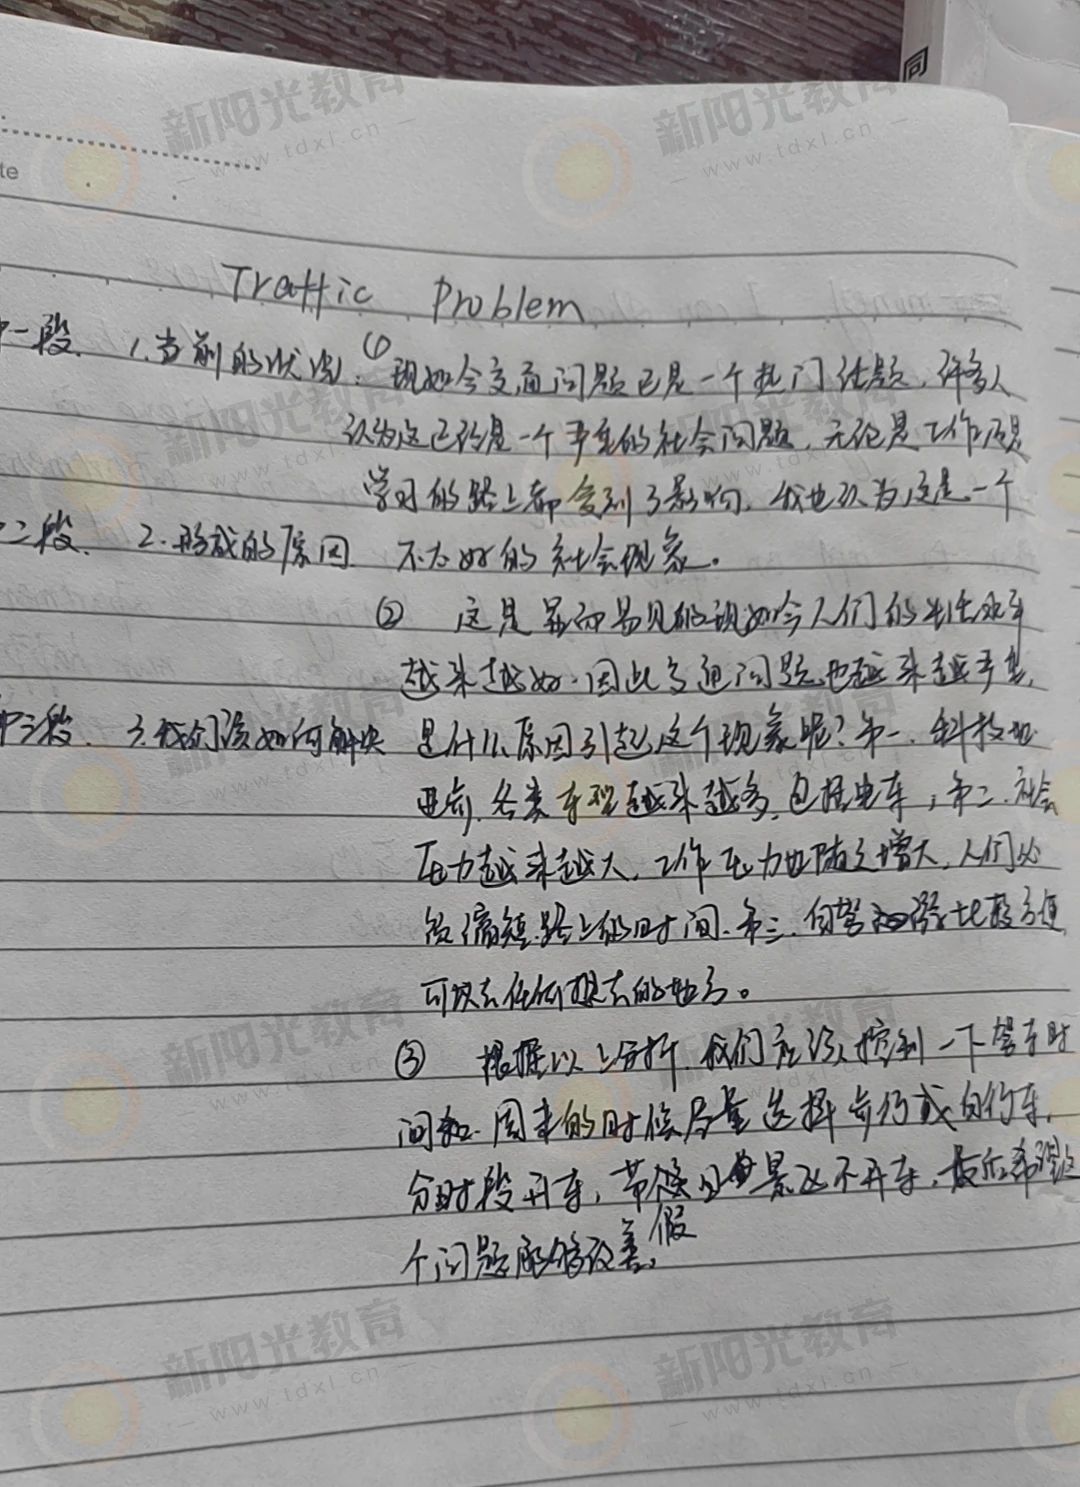 同
te
Traffic Problem
中一段. 1.当前的状况: ① 现如今交通问题已是一个热门话题, 许多人
认为这已经是一个严重的社会问题, 无论是工作还是
学习的路上都会受到了影响, 我也认为这是一个
中二段. 2.形成的原因 不太好的社会现象。
② 这是显而易见的现如今人们的生活水平
越来越好.因此交通问题也越来越严重,
中三段. 3.我们该如何解决 是什么原因引起这个现象呢?第一.科技的
进步,各类车型越来越多,包括电车;第二.社会
压力越来越大,工作压力也随之增大,人们必
须缩短路上的时间.第三.自驾 比较方便
可以去任何想去的地方。
③ 根据以上分析.我们应该控制一下驾车时
间和.周末的时候尽量选择步行或自行车.
分时段开车,节假日 景区不开车.最后希望这
个问题能够改善。假
新阳光教育
www.tdxl.cn